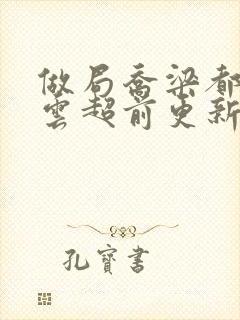 做局喬梁都
雲超前更新
孔寶書